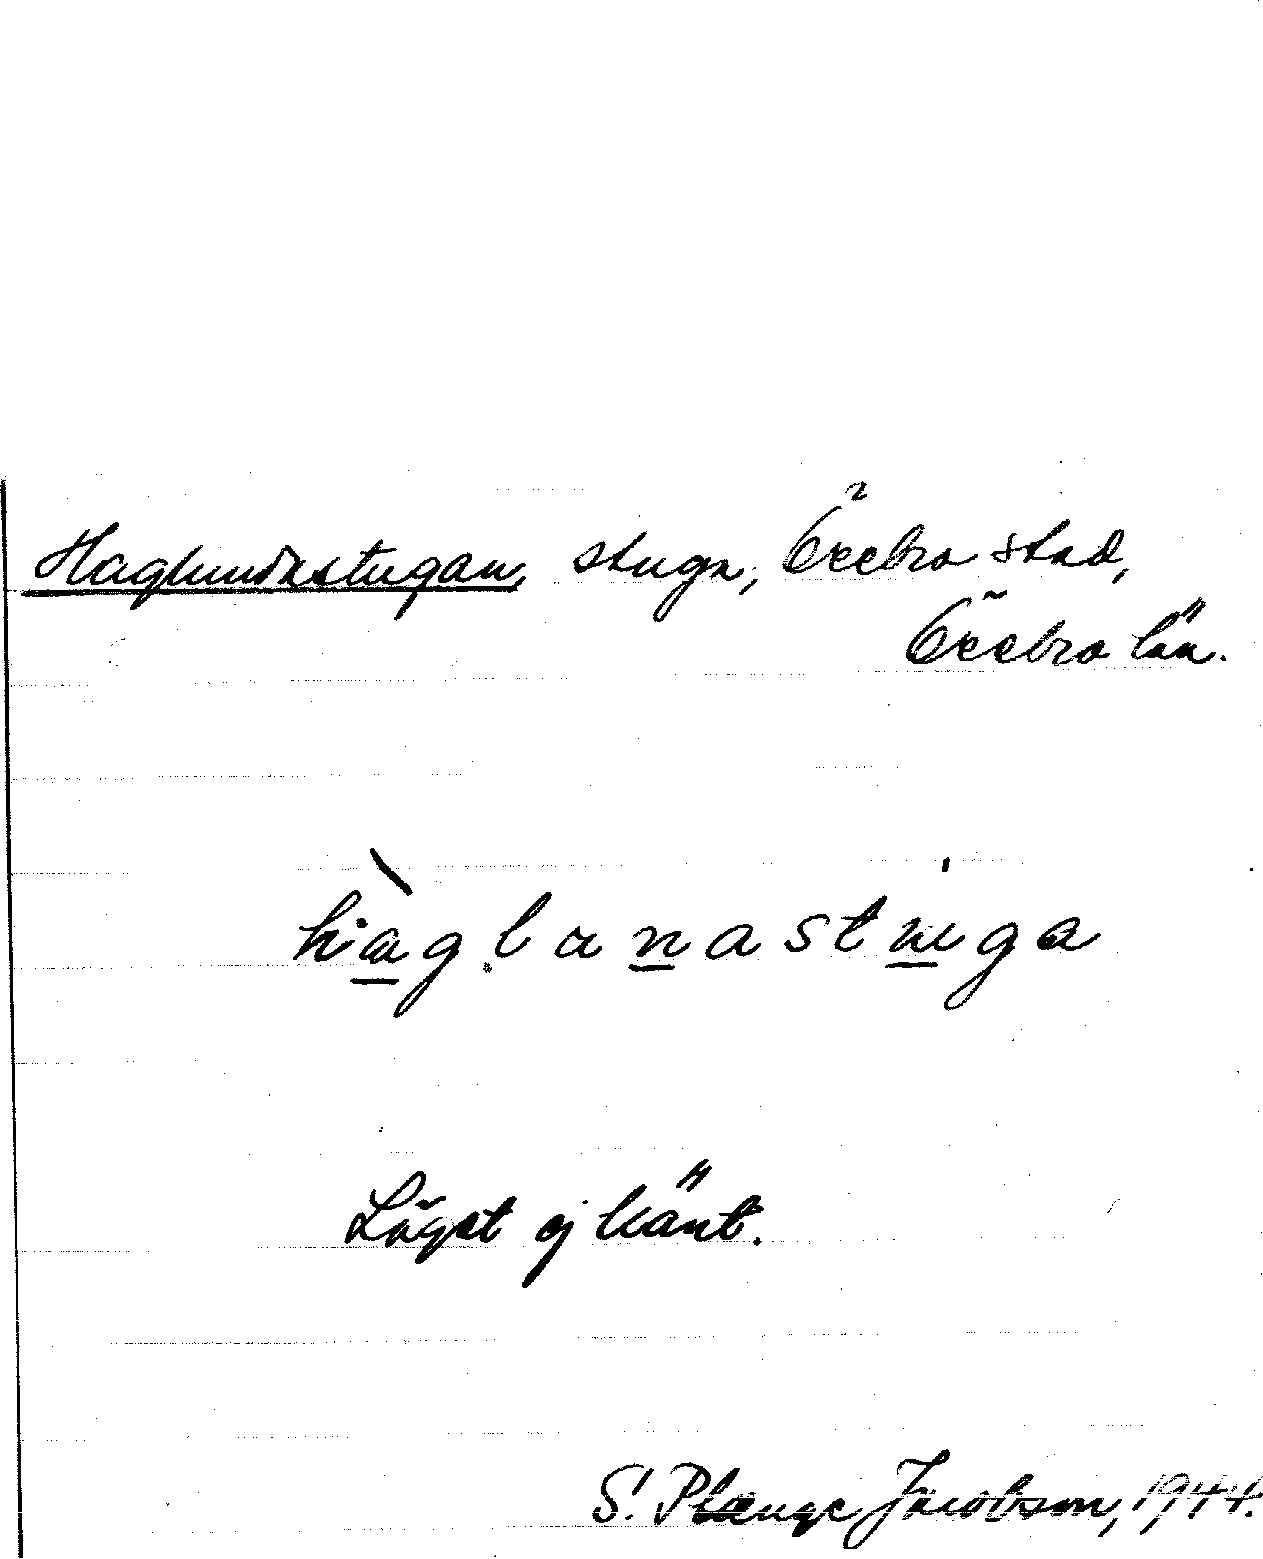 Haglundastugan, stuga, Örebro stad,
Örebro län.
Läget ej känt.
S. Plenge Jacobson, 1944.